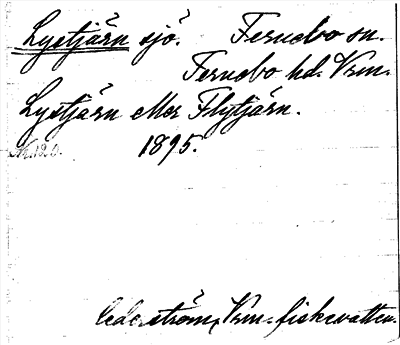 Lystjärn sjö. Fernebo sn.
Fernebo hd. Vrm.
Lystjärn eller Flytjärn.
1895.
Cederström, Vrm. fiskevatten.